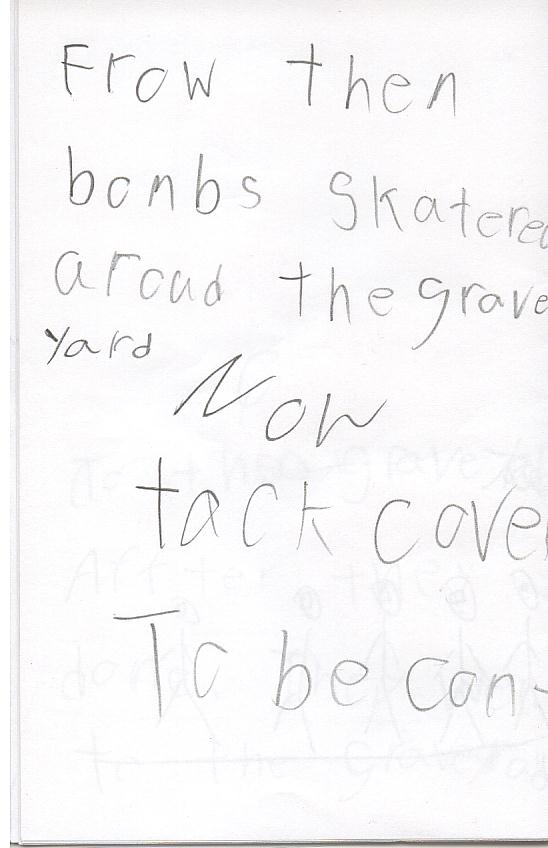 Frow then
bombs skatered
aroud the grave
yard
Now
tack cover
To be con-